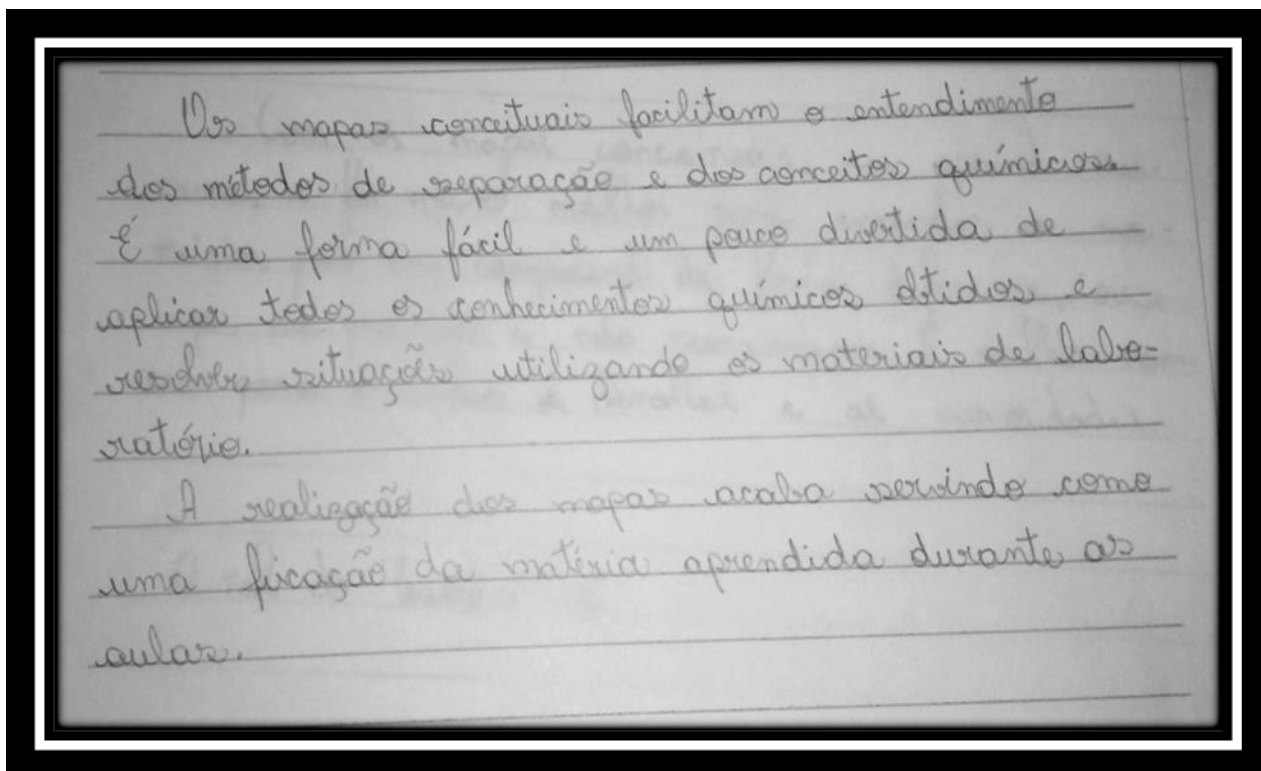 Os mapas conceituais facilitam o entendimento
dos métodos de separação e dos conceitos químicos.
É uma forma fácil e um pouco divertida de
aplicar todos os conhecimentos químicos obtidos e
resolver situações utilizando os materiais de labo-
ratório.
A realização dos mapas acaba servindo como
uma fixação da matéria aprendida durante as
aulas.